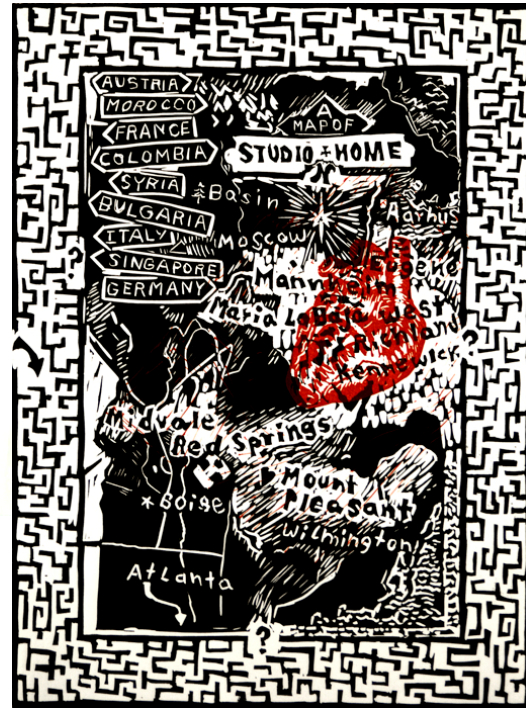 AUSTRIA
MOROCCO
FRANCE
COLOMBIA
SYRIA
BULGARIA
ITALY
SINGAPORE
GERMANY
A
MAP OF
STUDIO + HOME
Basin
Aarhus
Moscow
Eugene
Mannheim
Maria La Baja
West
Richland
Kennewick
Red Springs
Mount
Pleasant
*Boise
Wilmington
Atlanta
?
?
?